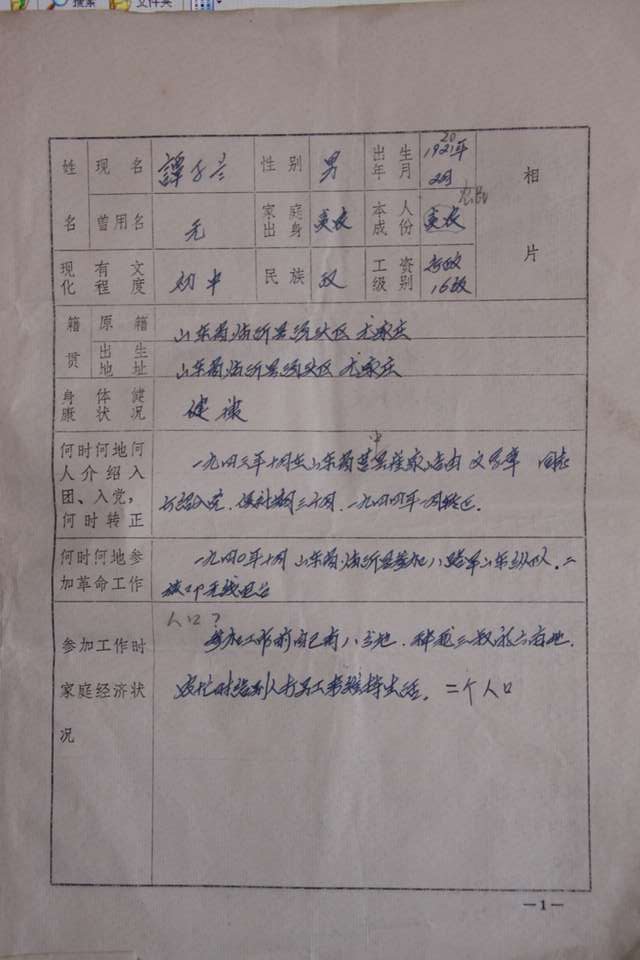 搜索 文件夹
姓 现名 譚 性别 男 出生 20
名 年月 1921年
2月
曾用名 无 家庭出身 贫农 本人成份 贫农
相片
现有文化程度 初中 民族 汉 工资级别 行政
16级
籍贯 原籍 山东省临沂县 区 尤家庄
出生地址 山东省临沂县 区 尤家庄
身体健康状况 健康
何时何地何
人介绍入 一九四三年十月在山东省莒中县 家 由 同志
团、入党， 介绍入党，候补期三个月，一九四四年一月转正。
何时转正
何时何地参 一九四〇年十月 山东省临沂县参加八路军山东纵队，二
加革命工作 旅 无线电台
人口？
参加工作时 参加工作前自己有八 地，种 三 亩地，
家庭经济状 农忙时给别人打 工 维持生活。二个人口
况
—1—